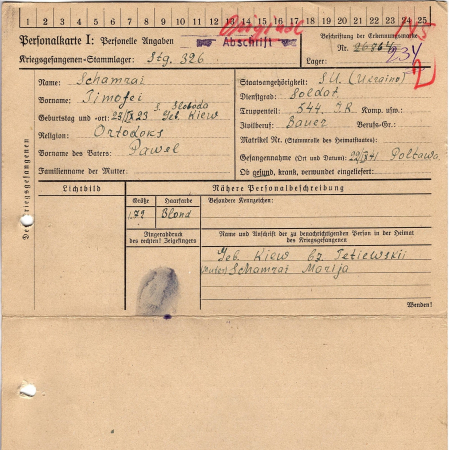 1 2 3 4 5 6 7 8 9 10 11 12 13 14 15 16 17 18 19 20 21 22 23 24 25
Original
Personalkarte I: Personelle Angaben
Abschrift
Beschriftung der Erkennungsmarke
Nr.
Kriegsgefangenen-Stammlager: Stg. 326
Lager:
Des Kriegsgefangenen
Name: Schamrai
Vorname: Timofei
Geburtstag und -ort: 23/IX 23 S. Sloboda Geb. Kiew
Religion: Ortodoks
Vorname des Vaters: Pawel
Familienname der Mutter:
Staatsangehörigkeit: SU. (Ukraine)
Dienstgrad: Soldat
Truppenteil: 544 IR Komp. usw.:
Zivilberuf: Bauer Berufs-Gr.:
Matrikel Nr. (Stammrolle des Heimatstaates):
Gefangennahme (Ort und Datum): 22/IX 41 Poltawa
Ob gesund, krank, verwundet eingeliefert:
Lichtbild
Nähere Personalbeschreibung
Größe
Haarfarbe
Besondere Kennzeichen:
1.72
Blond
Fingerabdruck
des rechten! Zeigefingers
Name und Anschrift der zu benachrichtigenden Person in der Heimat
des Kriegsgefangenen
Geb. Kiew bz Tetiewskii
Schamrai Marija
Wenden!